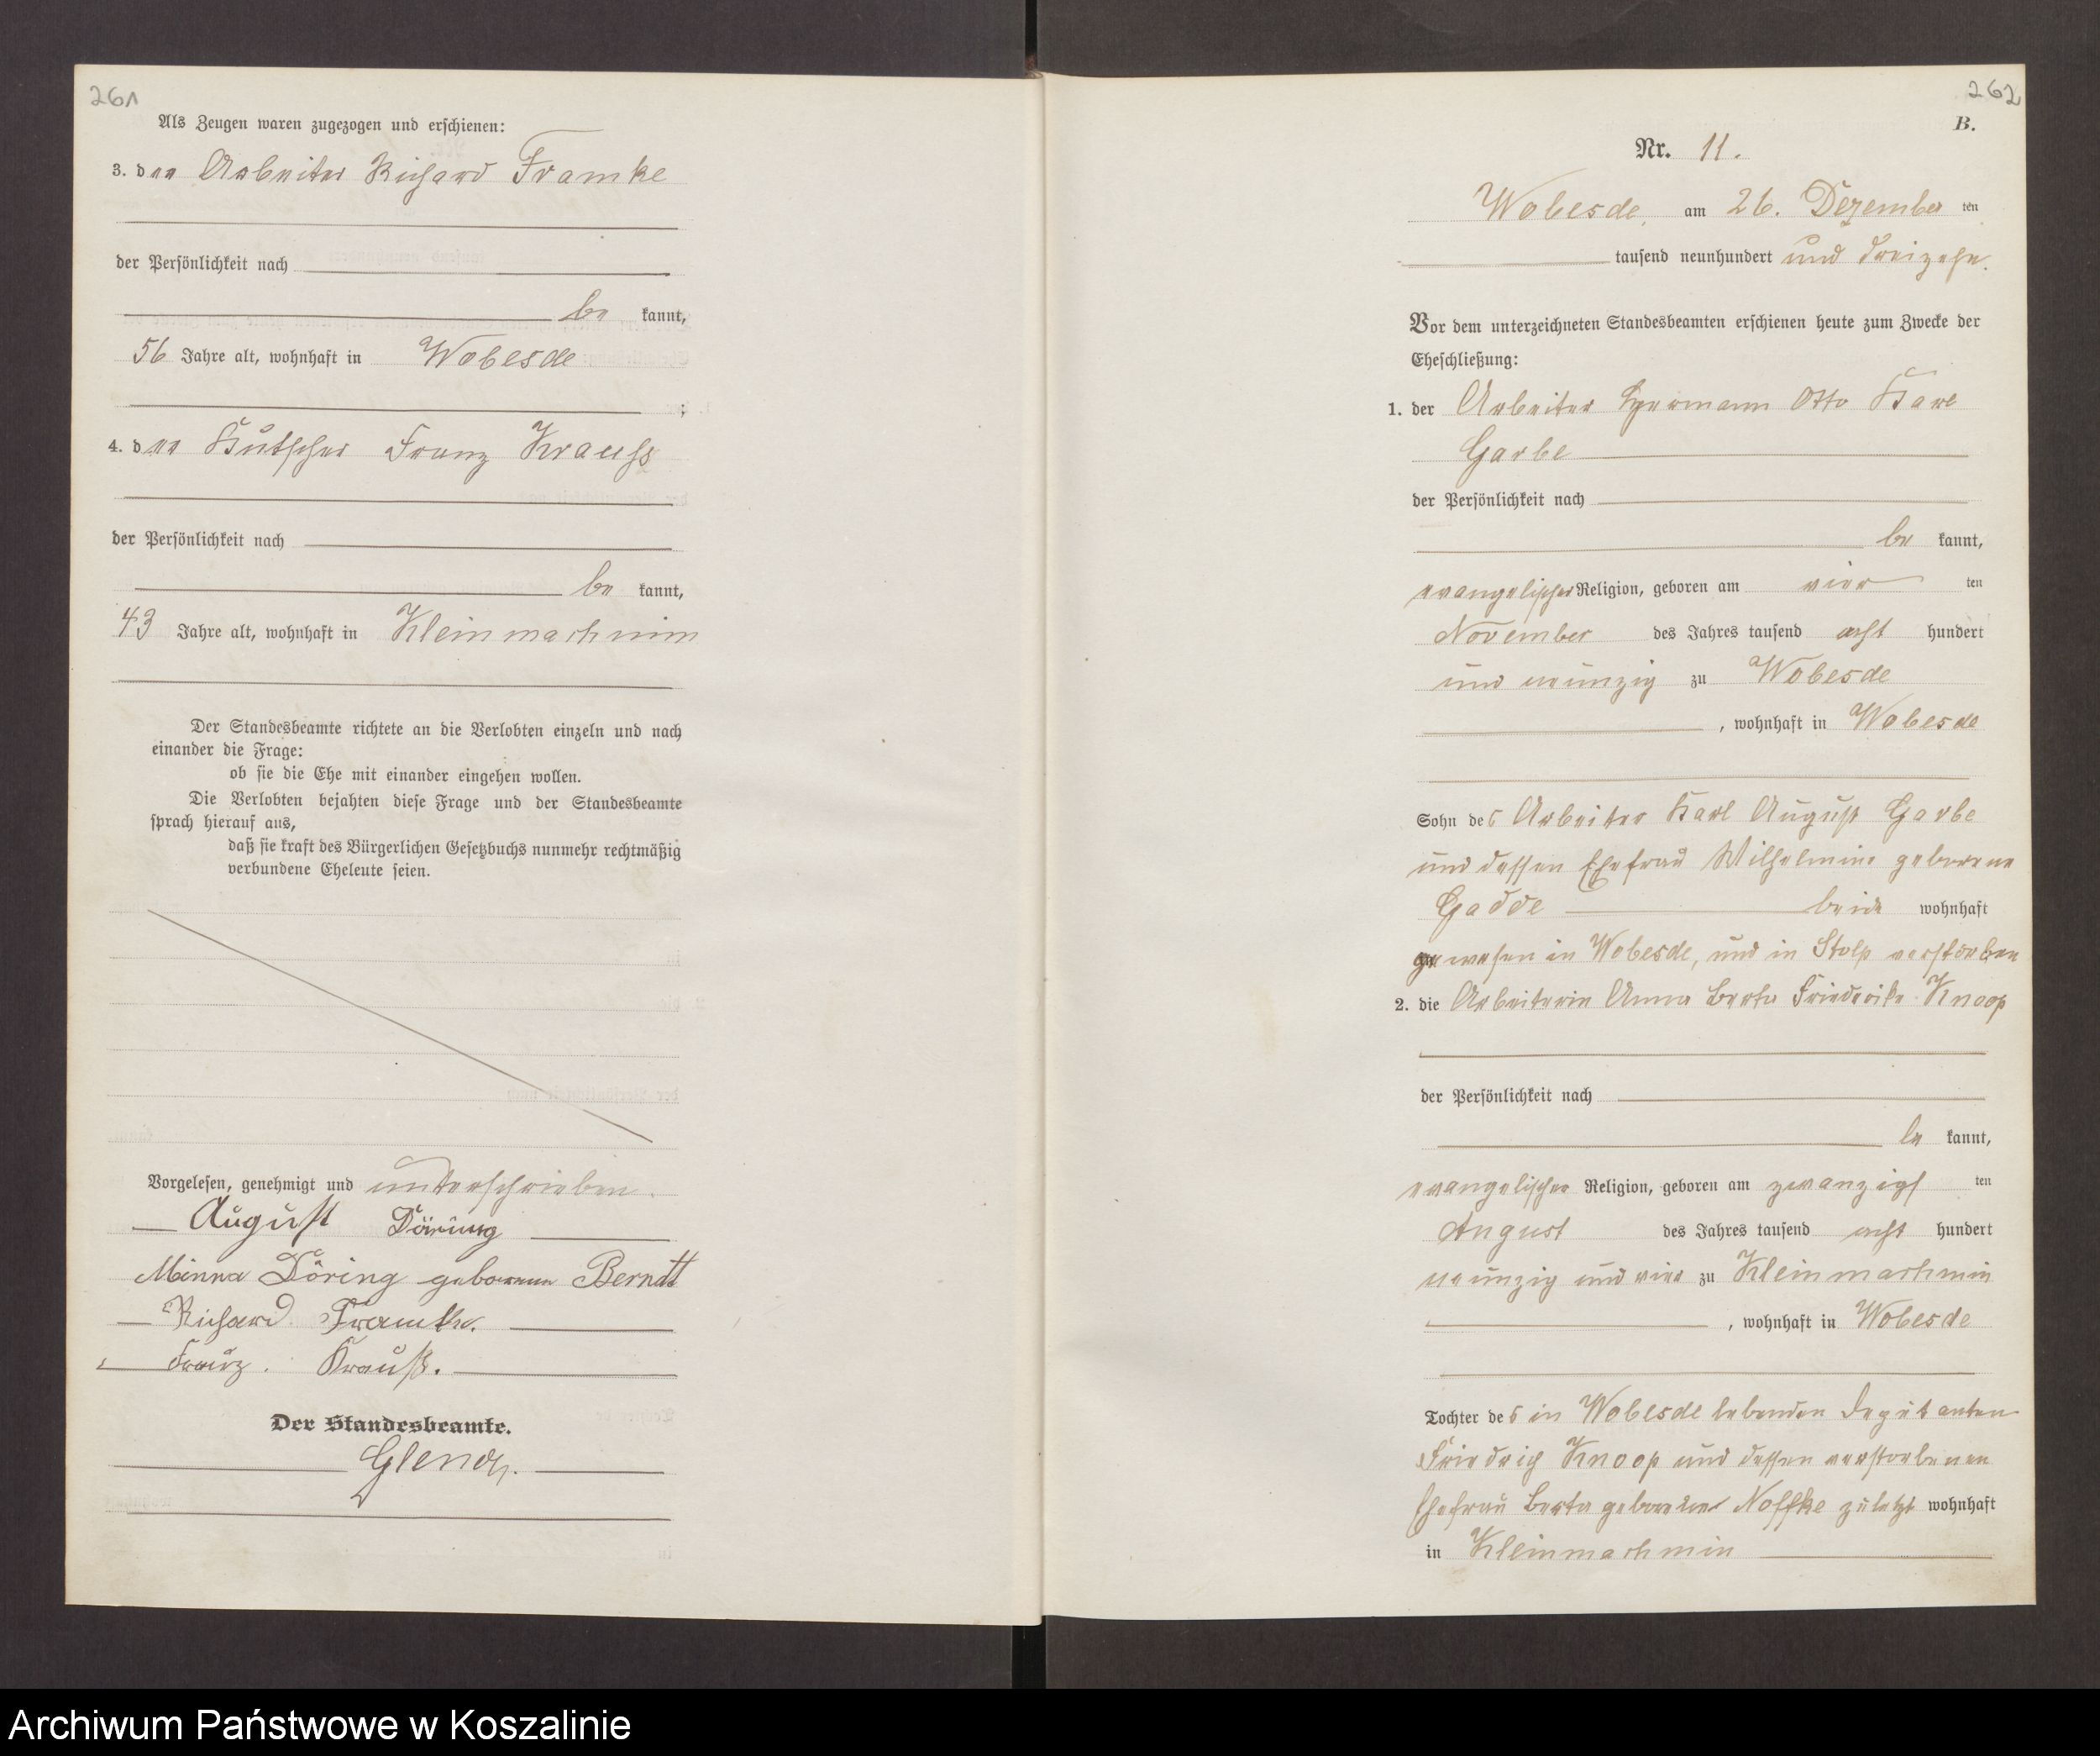 261
Als Zeugen waren zugezogen und erschienen:
3. der Arbeiter Richard Framke
der Persönlichkeit nach
be kannt,
56 Jahre alt, wohnhaft in Wobesde
;
4. der Kutscher Franz Krauss
der Persönlichkeit nach
be kannt,
43 Jahre alt, wohnhaft in Kleinmachmin
Der Standesbeamte richtete an die Verlobten einzeln und nach
einander die Frage:
ob sie die Ehe mit einander eingehen wollen.
Die Verlobten bejahten diese Frage und der Standesbeamte
sprach hierauf aus,
daß sie kraft des Bürgerlichen Gesetzbuchs nunmehr rechtmäßig
verbundene Eheleute seien.
Vorgelesen, genehmigt und unterschrieben.
August Döring
Minna Döring geborene Berndt
Richard Framke.
Franz. Krauß.
Der Standesbeamte.
262
B.
Nr. 11.
Wobesde, am 26. Dezember ten
tausend neunhundert und dreizehn.
Vor dem unterzeichneten Standesbeamten erschienen heute zum Zwecke der
Eheschließung:
1. der Arbeiter Hermann Otto Karl
Garbe
der Persönlichkeit nach
be kannt,
evangelischer Religion, geboren am vier ten
November des Jahres tausend acht hundert
und neunzig zu Wobesde
, wohnhaft in Wobesde
Sohn des Arbeiter Karl August Garbe
und dessen Ehefrau Wilhelmine geborene
Gadde beide wohnhaft
gewesen in Wobesde, und in Stolp verstorben
2. die Arbeiterin Anna Berta Friederike Knoop
der Persönlichkeit nach
be kannt,
evangelischer Religion, geboren am zwanzigs ten
August des Jahres tausend acht hundert
neunzig und vier zu Kleinmachmin
, wohnhaft in Wobesde
Tochter des in Wobesde lebenden Deputanten
Friedrich Knoop und dessen verstorbenen
Ehefrau Berta geborene Noffke zuletzt wohnhaft
in Kleinmachmin
Archiwum Państwowe w Koszalinie